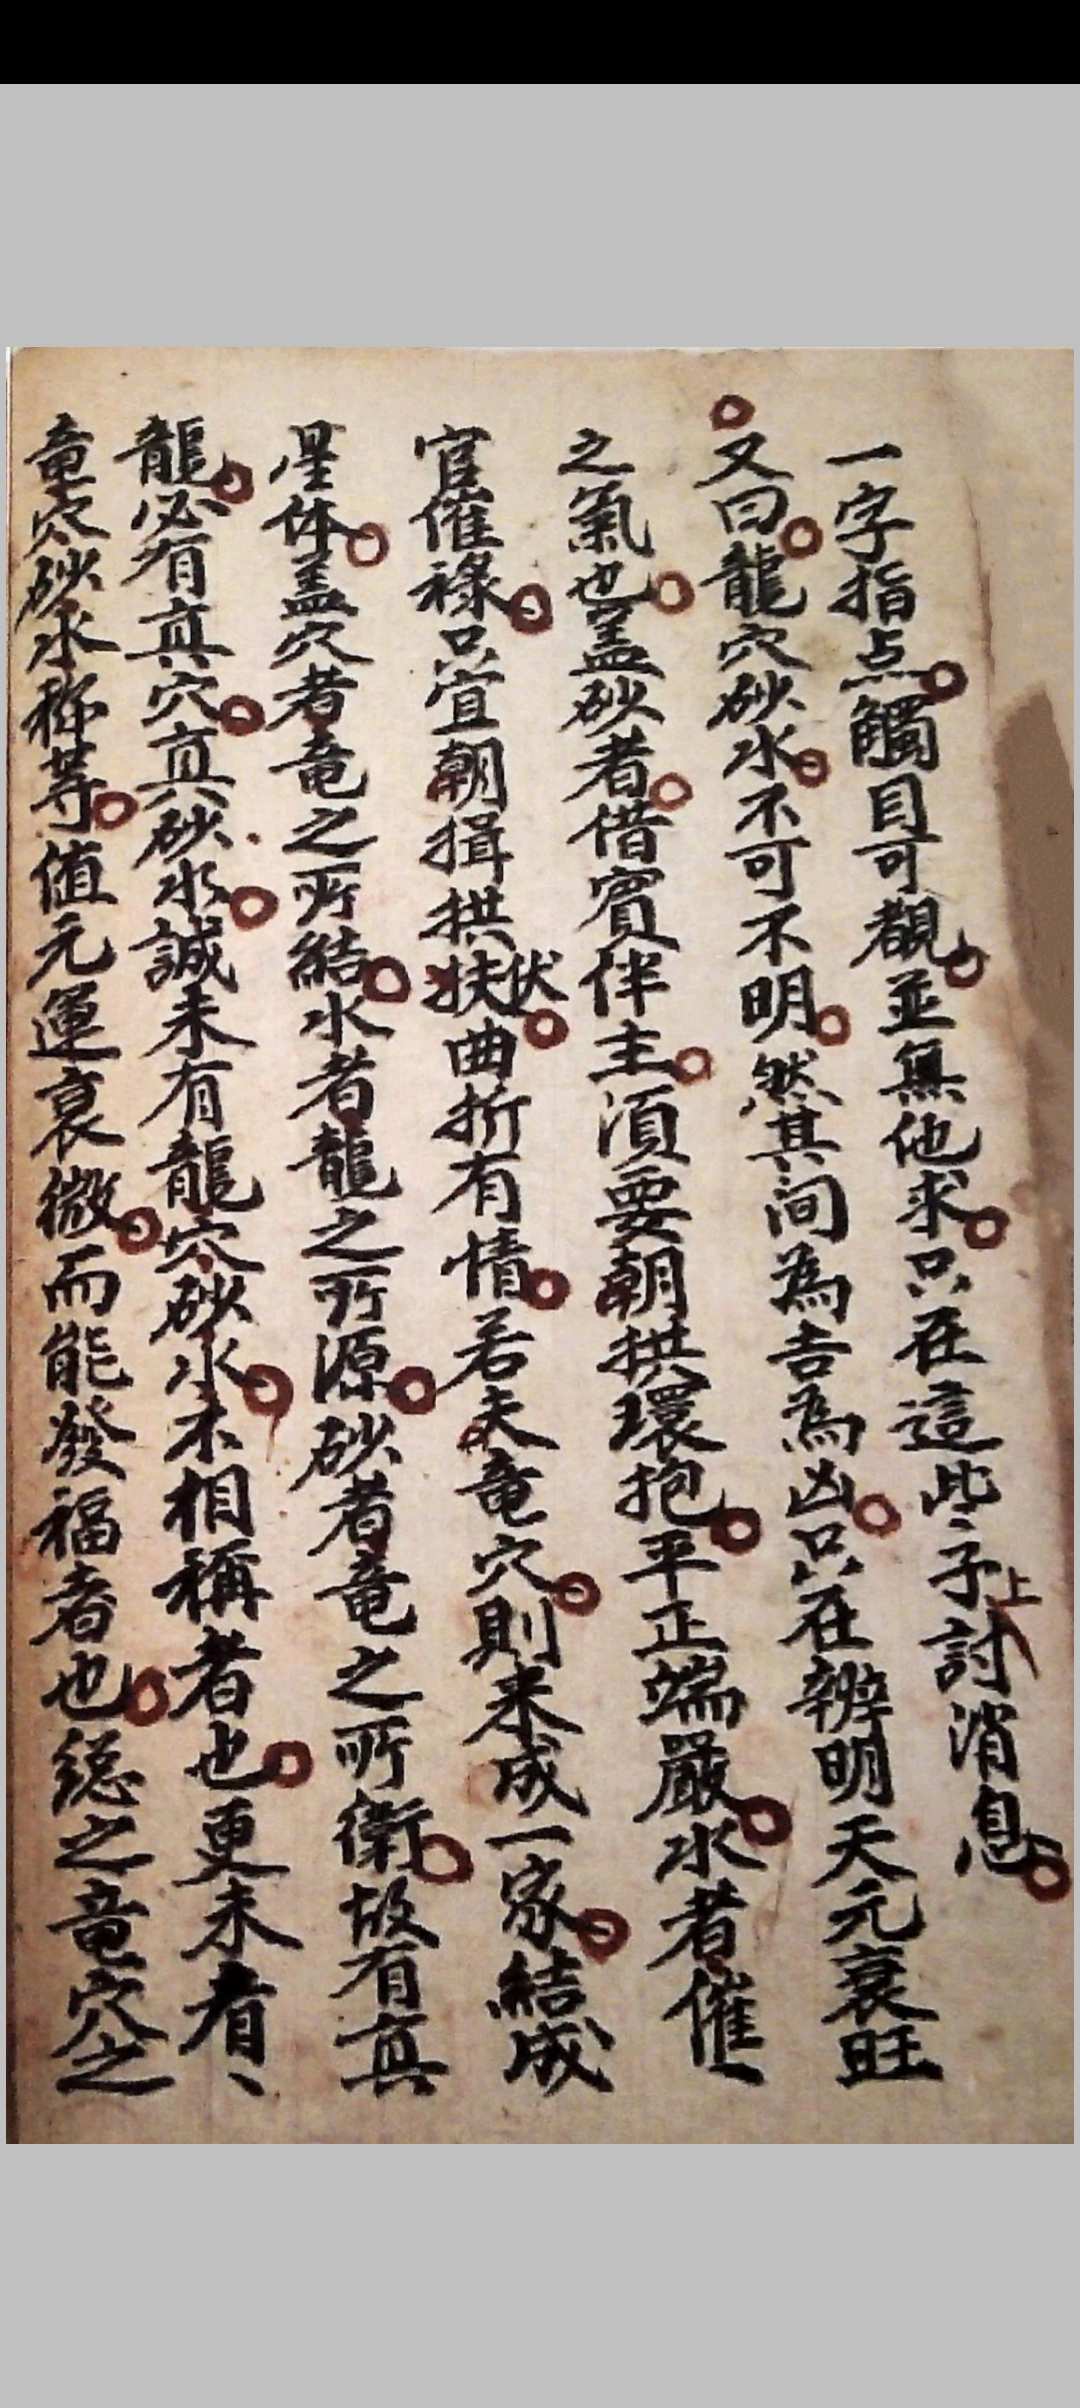 一字指点觸目可覩並無他求只在這些子上討消息
又曰龍穴砂水不可不明然其间為吉為凶只在辨明天元衰旺
之氣也盖砂者借賓伴主須要朝拱環抱平正端嚴水者催
官催祿只宜朝揖拱扶伏曲折有情若夫竜穴則来成一家結成
星体盖穴者竜之所結水者龍之所源砂者竜之所衛故有真
龍必有真穴真砂水誠未有龍穴砂水不相稱者也更未有
竜穴砂水称等值元運衰微而能發福者也総之竜穴之